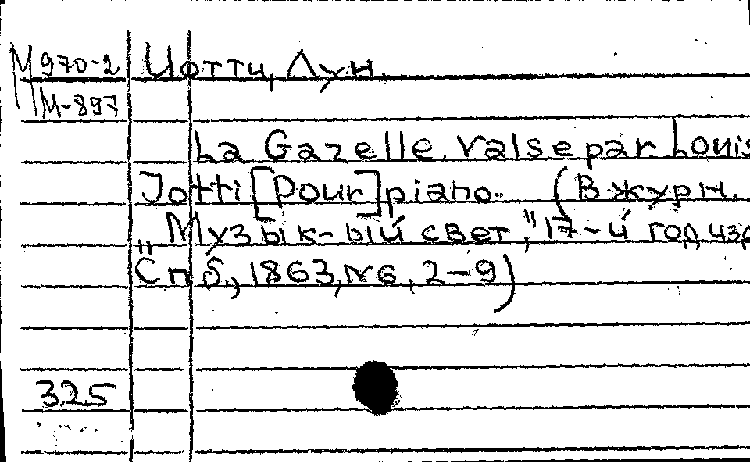 М 970-2 Иотти, Луи.
М-897
La Gazelle. Valse par Louis
Jotti [Pour] piano. (В журн.
„Музык-ый свет," 17-й год изд
Спб., 1863, №6, 2-9)
325